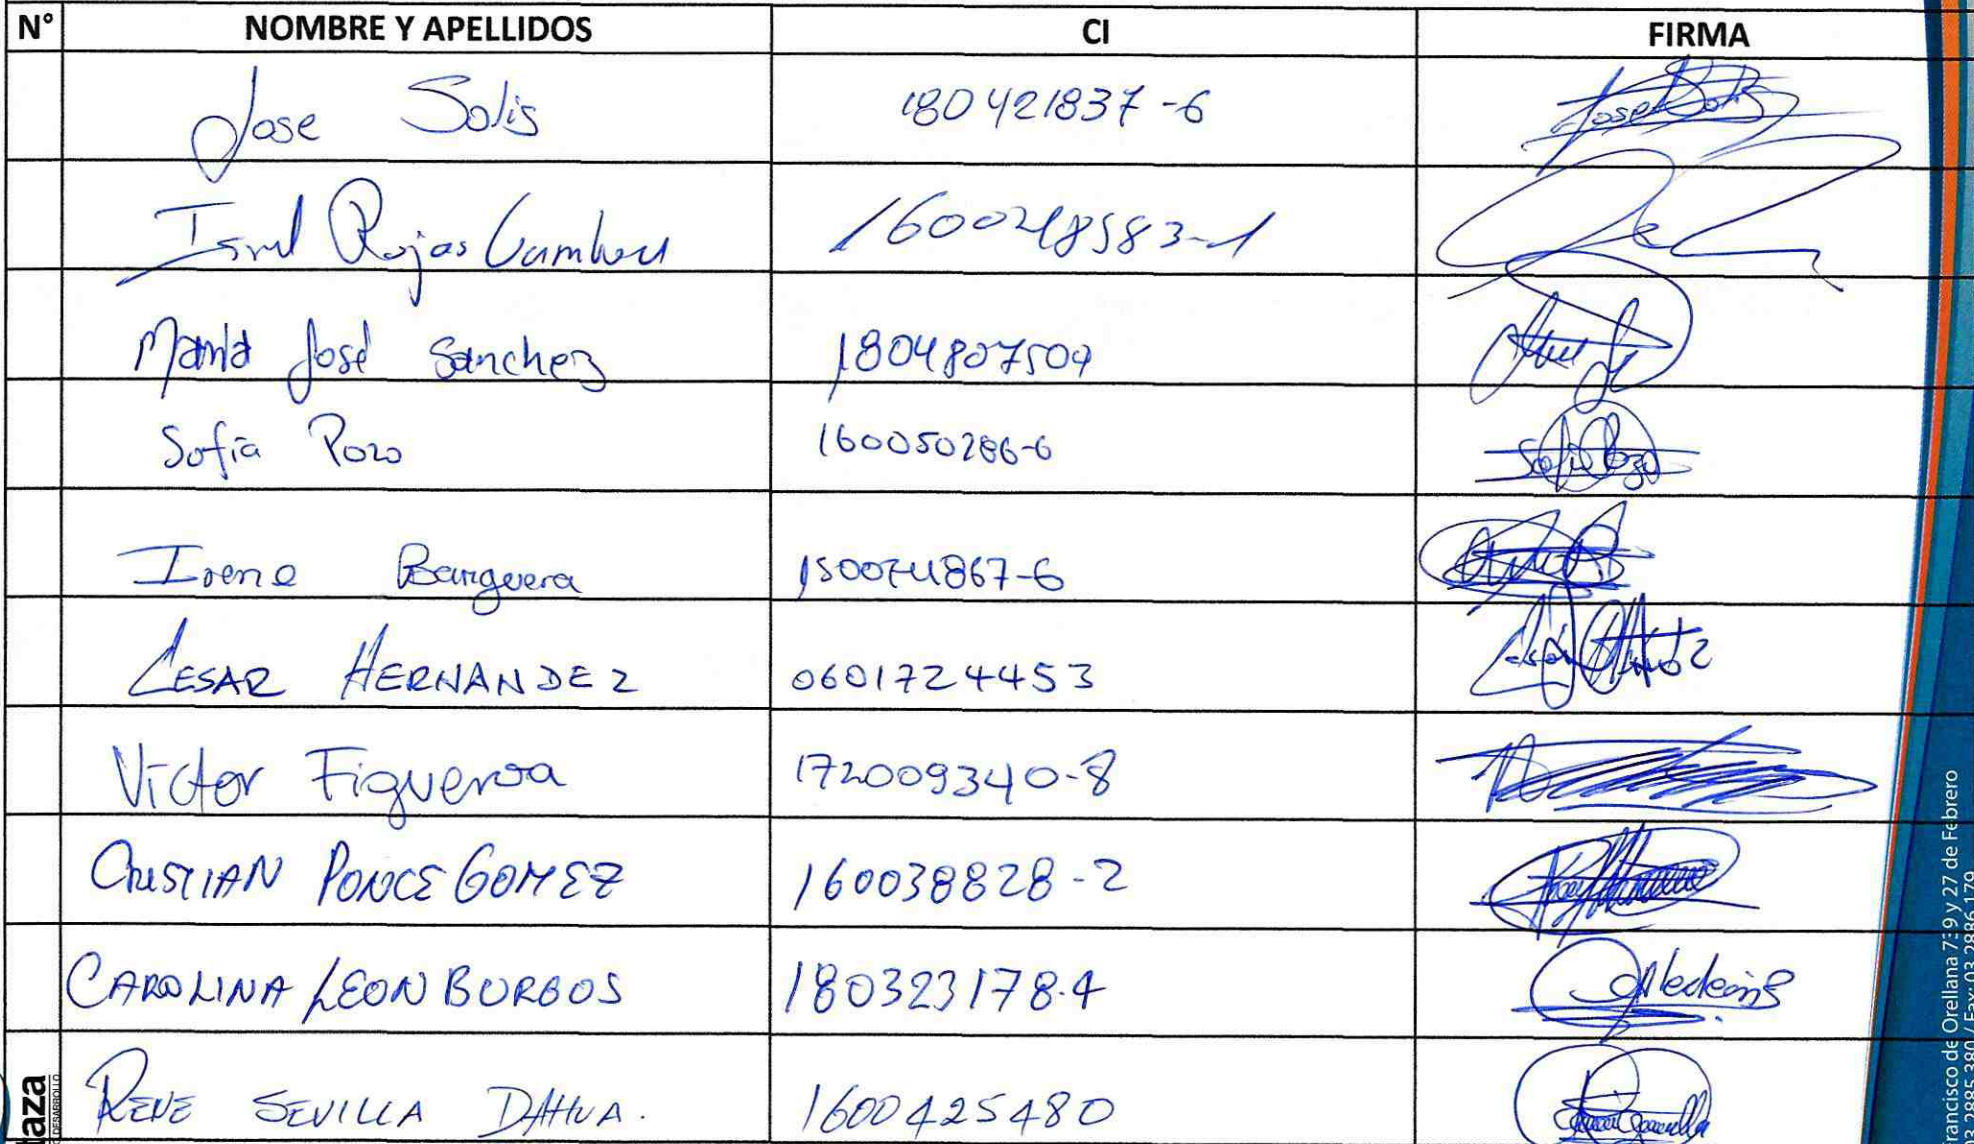 N° NOMBRE Y APELLIDOS CI FIRMA
Jose Solis 180421837-6
Rojas
María José Sánchez 1804807509
Sofía Pozo 160050286-6 Sofia Pozo
Irene Banguera
CESAR HERNANDEZ 0601724453
Victor Figueroa 172009340-8
CRISTIAN PONCE GOMEZ 160038828-2
CAROLINA LEON BURGOS 180323178-4
RENE SEVILLA DAHUA. 1600425480
laza
DESARROLLO
rancisco de Orellana 739 y 27 de Febrero
03 2885 380 / Fax: 03 2886 179